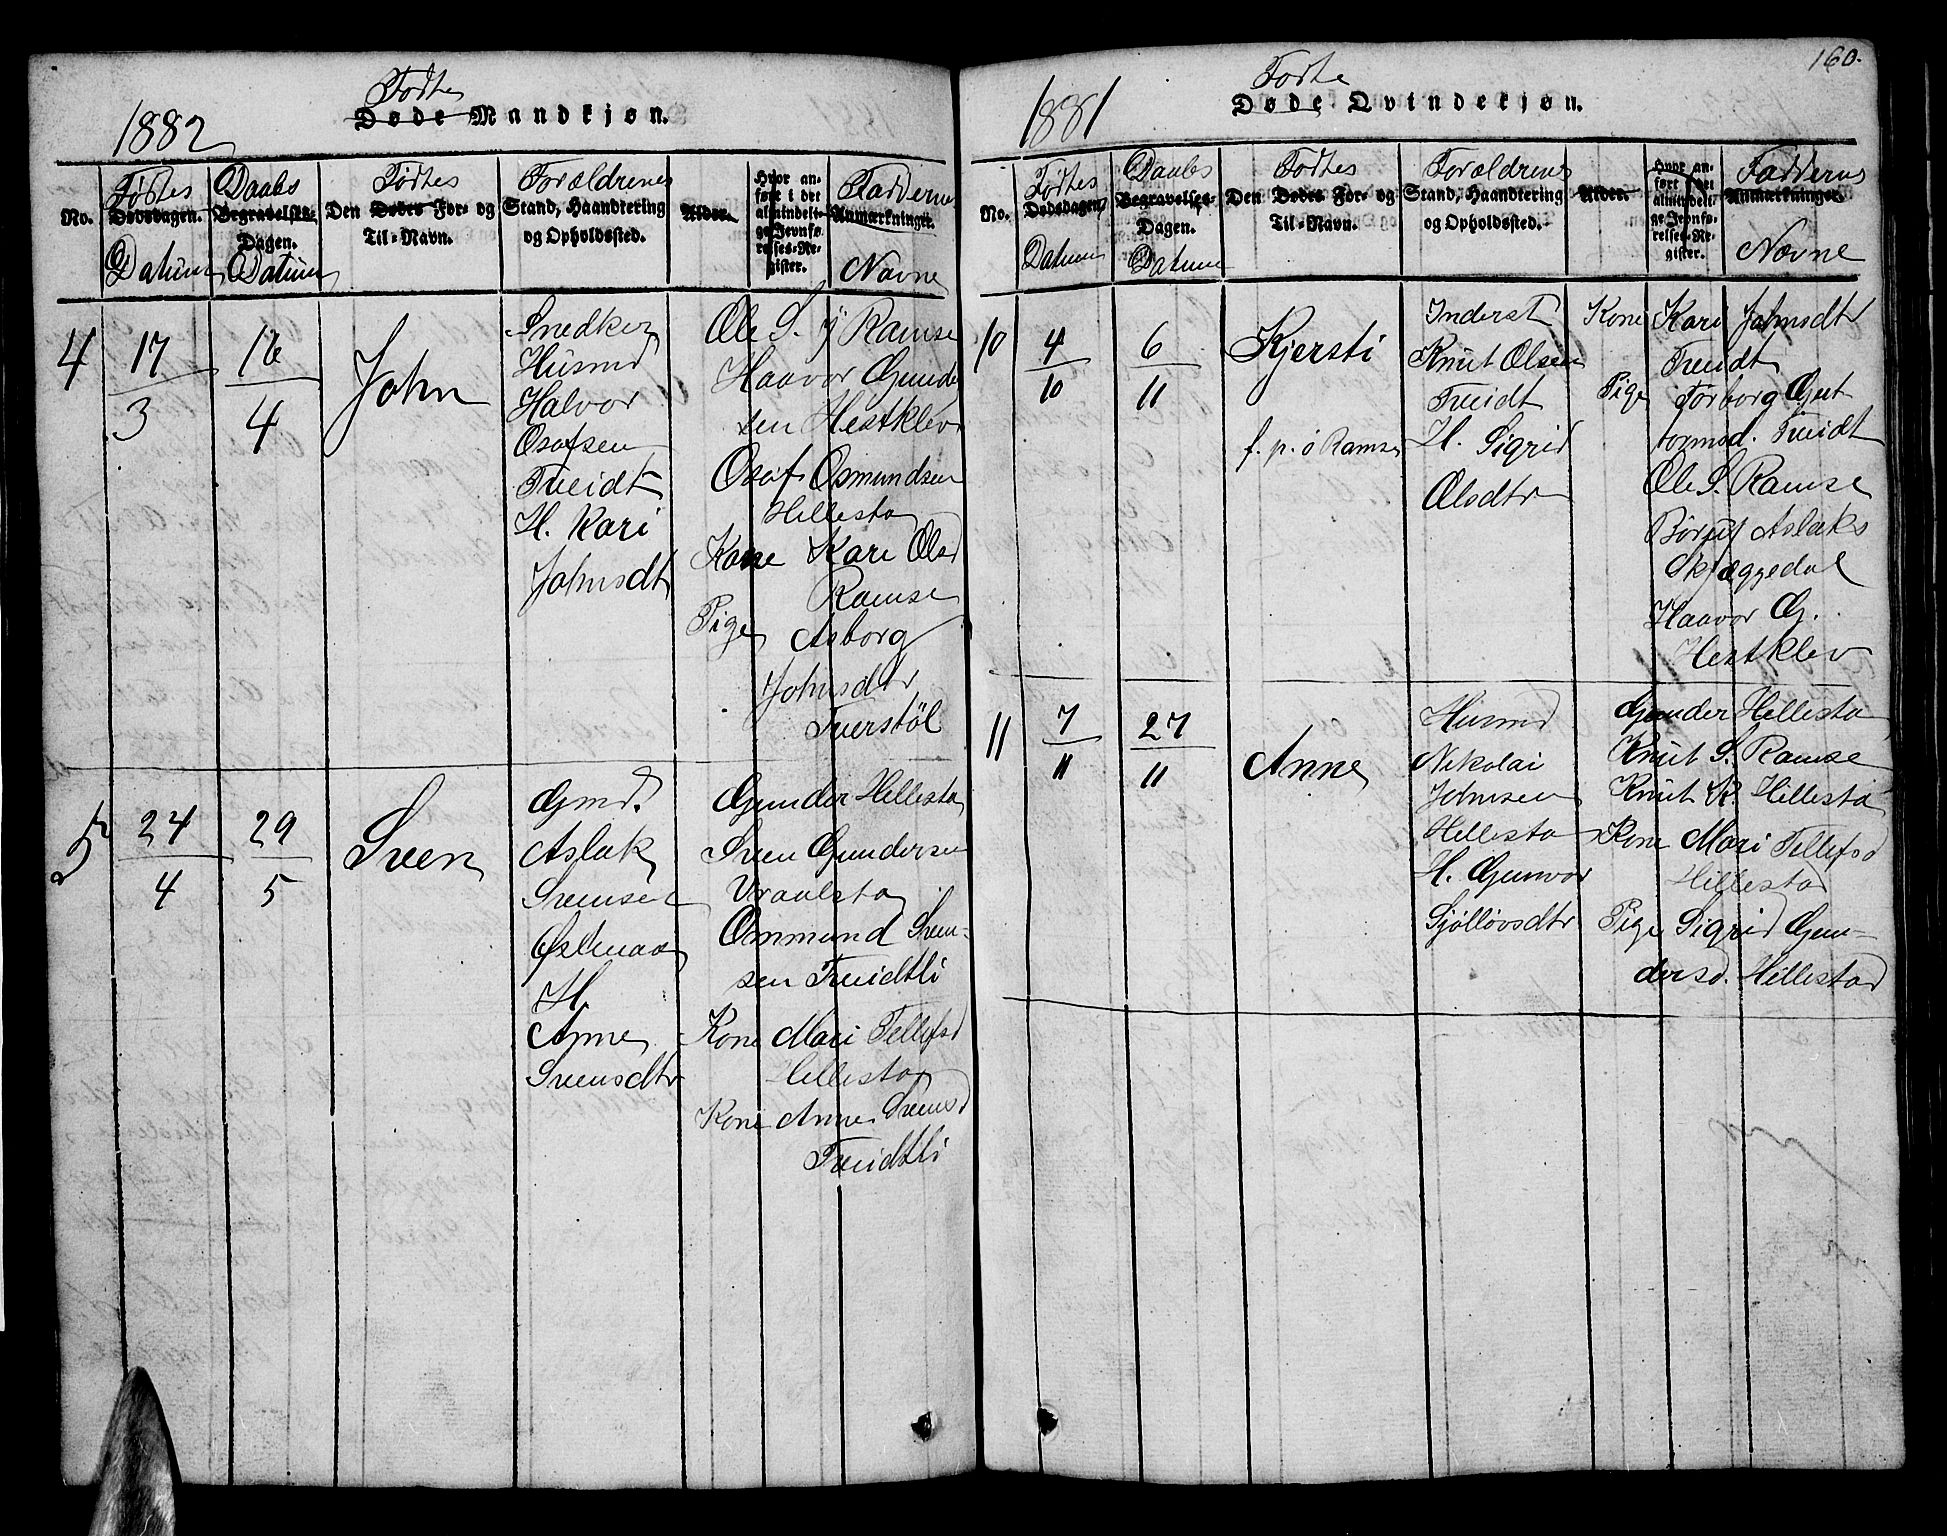 160.
Fødte
1882
Døde Mandkjøn.
No.
Fødtes
Dødsdagen.
Datum
Daabs
Begravelses-
Dagen.
Datum
Fødtes
Den Dødes For- og
Til-Navn.
Forældrenes
Stand, Haandtering
og Opholdssted.
Alder.
Hvor an-
ført i det
almindeli-
ge Jevnfø-
relses-Re-
gister.
Faddernes
Anmærkninger.
Navne
4
17
3
16
4
John
Snedker
Husmd
Halvor
Osofsen
Treidt
H. Kari
Johnsdt
Ole S. Ramse
Haavor Gunder
sen Hestklev
Osof Osmundsen
Hillesta
Kone Kari Olsd
Ramse
Pige Asborg
Johnsdtr
Tverstöl
5
24
4
29
5
Sven
Gmd.
Aslak
Svensen
H.
Anne
Svensdtr
Gunder Hillesta
Sven Gundersen
Vraalsta
Ommund Sven-
sen Treidtli
Kone Mari Tellefsd
Hillesta
Kone Anne Svensd
Treidtli
Fødte
1881
Døde Qvindekjøn.
No.
Fødtes
Dødsdagen
Datum
Daabs
Begravelses-
Dagen.
Datum
Fødtes
Den Dødes For- og
Til-Navn.
Forældrenes
Stand, Haandtering
og Opholdssted.
Alder.
Hvor an-
ført i det
almindeli-
ge Jevnfø-
relses-Re-
gister.
Faddernes
Anmærkninger
Navne
10
4
10
6
11
Kjersti
f. p. ö Ramse
Inderst
Knut Olsen
Treidt
H. Sigrid
Olsdtr
Kone Kari Johnsdtr
Treidt
Pige Torborg Gut
tormsd. Treidt
Ole S. Ramse
Börut Aslaks
Skjæggedal
Haavor G.
Hestklev
11
7
11
27
11
Anne
Husmd
Nikolai
Johnsen
Hillesta
H. Gunvor
Sjöllövsdtr
Gunder Hillesta
Knut S. Ramse
Knut K. Hillesta
Kone Mari Tellefsd
Hillestad
Pige Sigrid Gun-
dersd. Hillestad